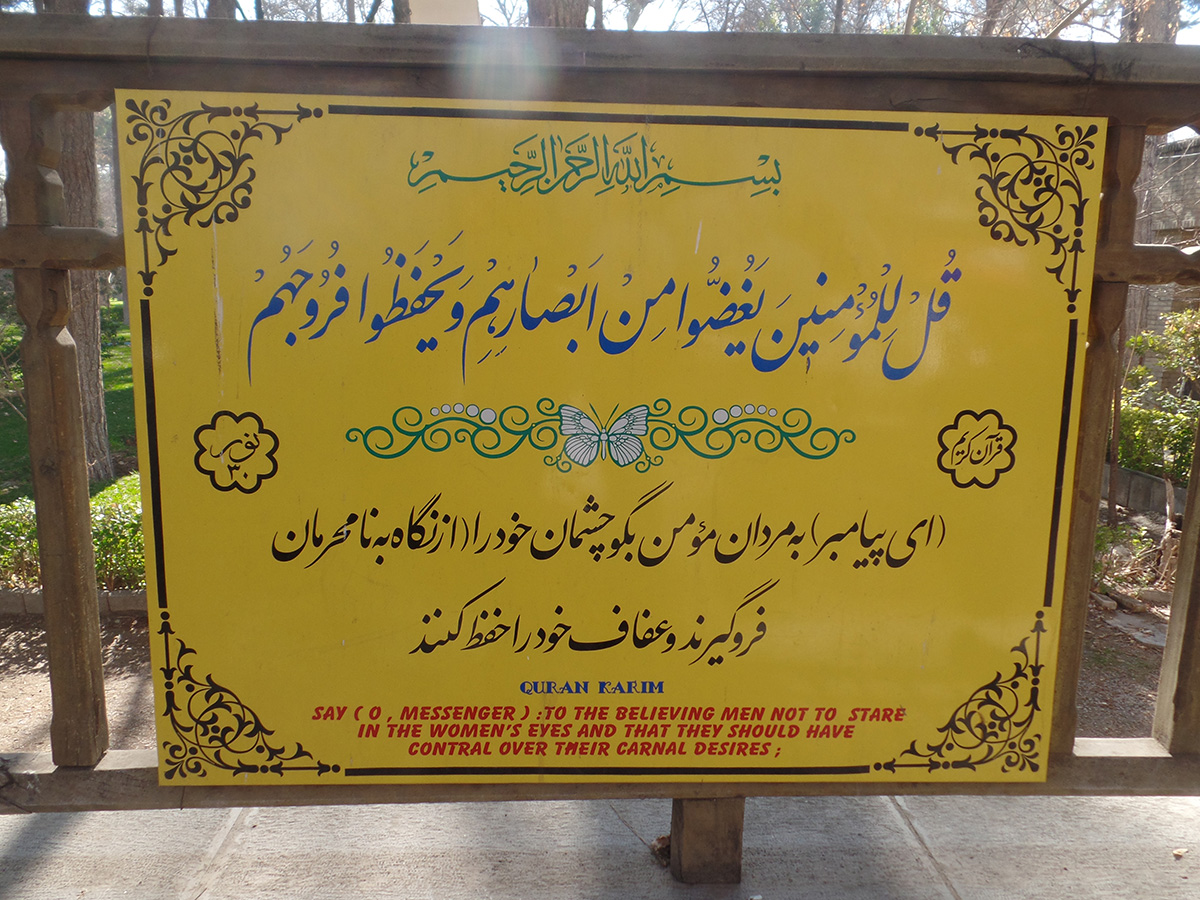 بِسْمِ اللهِ الرَّحْمنِ الرَّحيمْ
قُلْ لِلْمُؤْمِنينَ يَغُضُّوا مِنْ اَبْصارِهِمْ وَ يَحْفَظُوا فُرُوجَهُمْ
قرآن کریم
نور ۳۰
(ای پیامبر) به مردان مؤمن بگو چشمان خود را (از نگاه به نامحرمان
فروگیرند و عفاف خود را حفظ کنند
QURAN KARIM
SAY ( O , MESSENGER ) :TO THE BELIEVING MEN NOT TO STARE
IN THE WOMEN'S EYES AND THAT THEY SHOULD HAVE
CONTRAL OVER THEIR CARNAL DESIRES ;